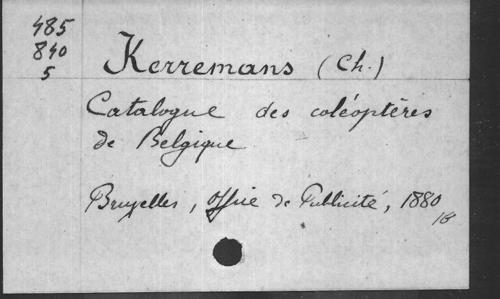 485
840
5
Kerremans (Ch.)
Catalogue des coléoptères
de Belgique
Bruxelles, Office de Publicité, 1880
18